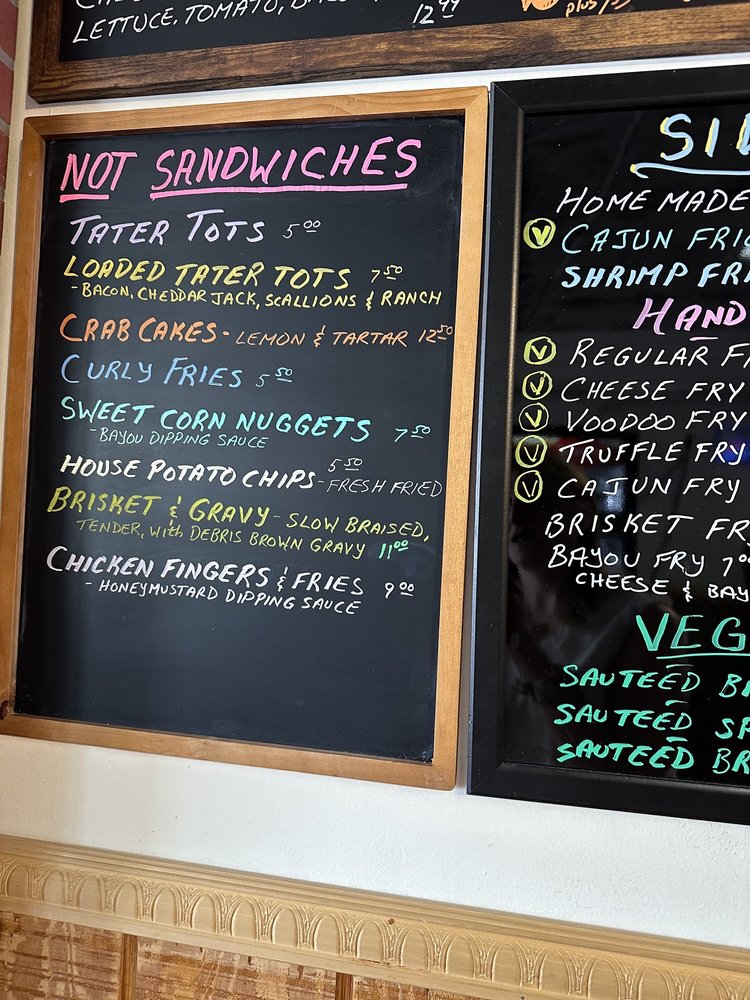 LETTUCE, TOMATO,
12.99
plus/
NOT SANDWICHES
TATER TOTS 5.00
LOADED TATER TOTS 7.50
- BACON, CHEDDAR JACK, SCALLIONS & RANCH
CRAB CAKES - LEMON & TARTAR 12.50
CURLY FRIES 5.50
SWEET CORN NUGGETS 7.50
- BAYOU DIPPING SAUCE
HOUSE POTATO CHIPS - 5.50
FRESH FRIED
BRISKET & GRAVY - SLOW BRAISED,
TENDER, with DEBRIS BROWN GRAVY 11.00
CHICKEN FINGERS & FRIES 9.00
- HONEYMUSTARD DIPPING SAUCE
HOME MADE
V CAJUN
SHRIMP
HAND
V REGULAR
V CHEESE FRY
V VOODOO FRY
V TRUFFLE FRY
V CAJUN FRY
BRISKET FRY
BAYOU FRY 7.00
CHEESE &
SAUTEED
SAUTEED
SAUTEED